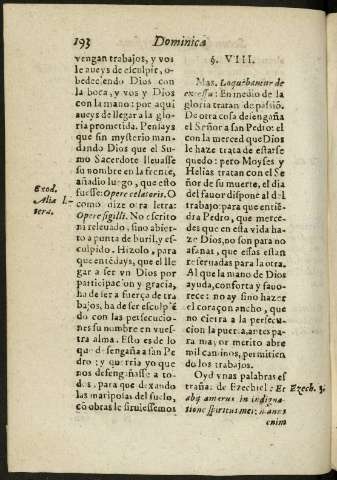 193 Dominica
vengan trabajos, y vos
le aueys de esculpir, o-
bedeciendo Dios con
la boca, y vos y Dios
con la mano: por aqui
aueys de llegar a la glo-
ria prometida. Pensays
que sin mysterio man-
dando Dios que el Su-
mo Sacerdote lleuasse
su nombre en la frente,
añadio luego, que esto
fuesse: Opere celatoris. O
como dize otra letra:
Opere sigilli. No escrito
ni releuado, sino abier-
to a punta de buril, y es-
culpido. Hizolo, para
que entēdays, que el lle
gar a ser vn Dios por
participacion y gracia,
ha de ser a fuerça de tra
bajos, ha de ser esculpi
do con las persecucio-
nes su nombre en vues-
tra alma. Esto es de lo
que desengaña a san Pe
dro: y querria yo que
nos desengañasse a to-
dos, para que dexando
las mariposas del suelo,
cō obras le siruiessemos
Exod.
Alia l-
tera.
§. VIII.
Mas. Loquebantur de
excessu: En medio de la
gloria tratan de passiō.
De otra cosa desengaña
el Señor a san Pedro: el
con la merced que Dios
le haze trata de estarse
quedo: pero Moyses y
Helias tratan con el Se
ñor de su muerte, el dia
del fauor dispone al del
trabajo. O para que entiē
dra Pedro, que merce-
des que en esta vida ha-
ze Dios, no son para no
afanas, que essas estan
reseruadas para la otra.
Al que la mano de Dios
ayuda, conforta y fauo-
rece: no ay sino hazer
el coraçon ancho, que
no cierra a la persecu-
cion la puerta, antes pa-
ra mayor merito abre
mil caminos, permitien
do los trabajos.
Oyd vnas palabras es
trañas de Ezechiel: Et
abij amarus in indigna-
tione spiritus mei: manus
enim
Ezech. 3.